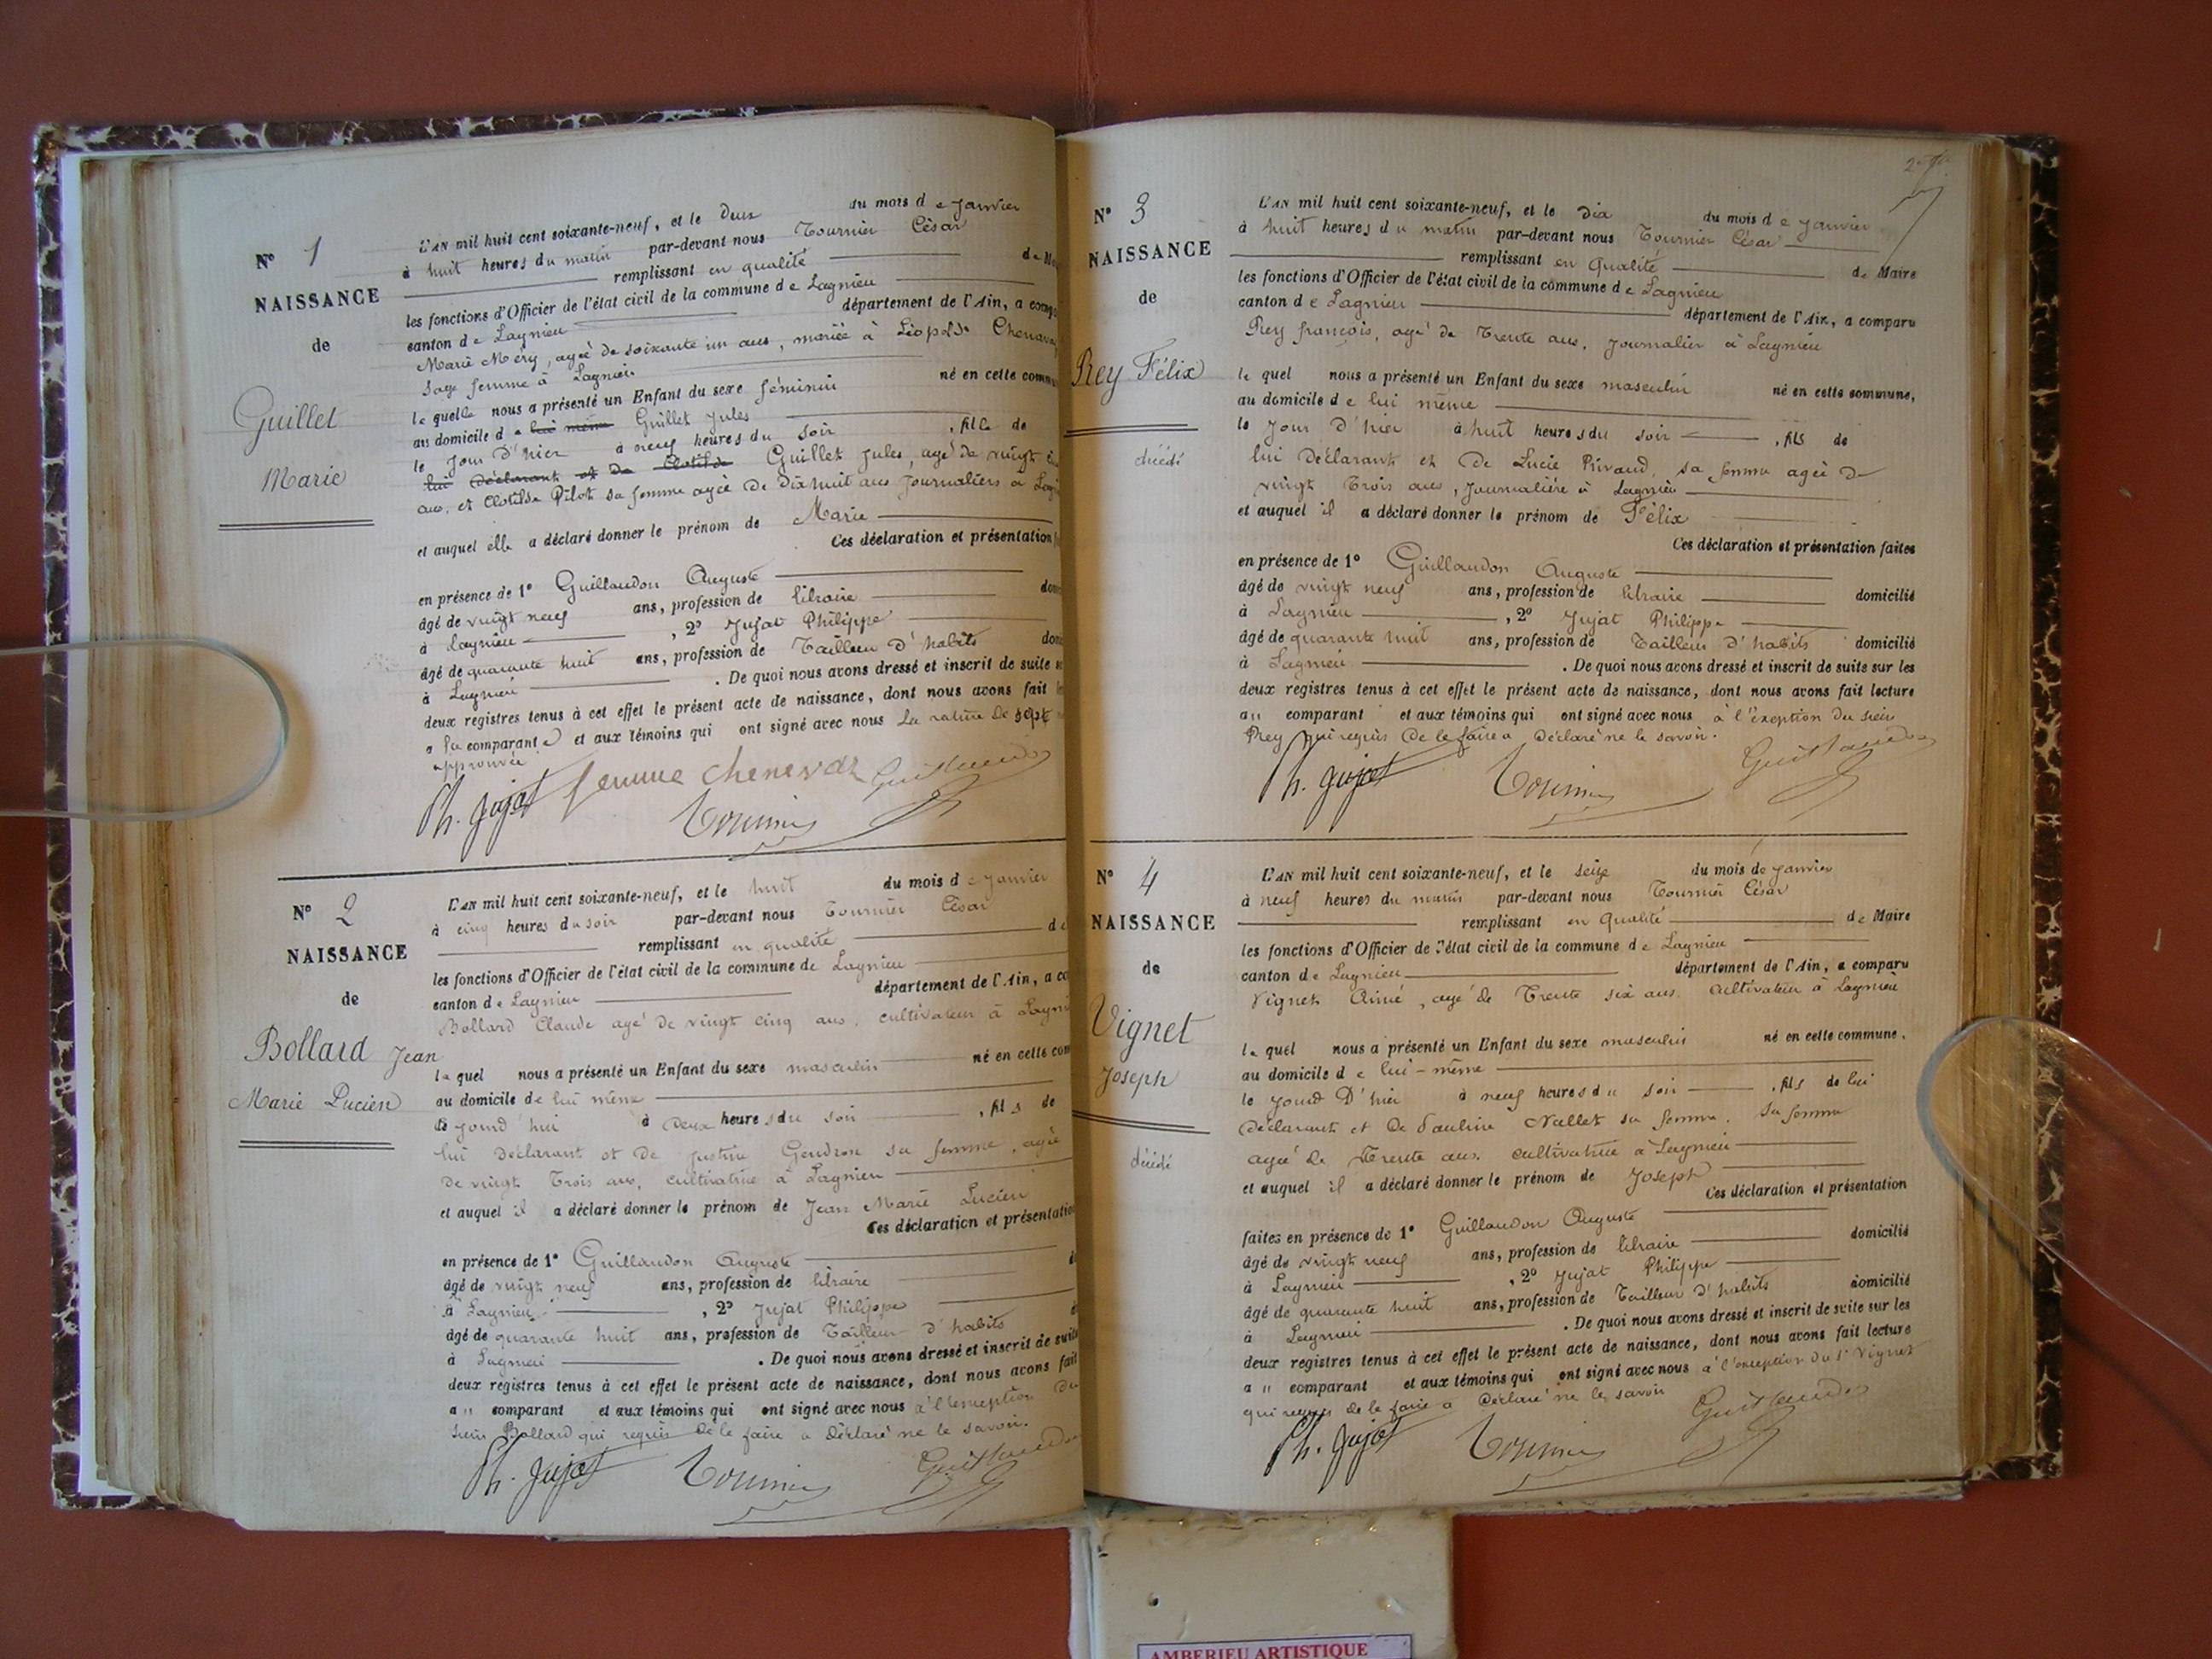 N° 1
NAISSANCE
de
Guillet
Marie
L'AN mil huit cent soixante-neuf, et le Deux du mois d e Janvier
à huit heures du matin par-devant nous Tournier César
remplissant en qualité de
les fonctions d'Officier de l'état civil de la commune d e Lagnieu
canton d e Lagnieu département de l'Ain, a
Marie Méry, agée de soixante un ans, mariée à Léopold
Sage femme à Lagnieu
la quelle nous a présenté un Enfant du sexe féminin né en cette
au domicile d e lui même Guillet Jules
le Jour D'hier à neuf heures du soir , fille de
lui Déclarant et De Clotilde Guillet Jules, agé de vingt
ans, et Clotilde Pilot sa femme agée De Dix huit ans Journaliers à
et auquel elle a déclaré donner le prénom de Marie
Ces déclaration et présentation
en présence de 1° Guillaudon Auguste
âgé de vingt neuf ans, profession de libraire
à Lagnieu , 2° Jujat Philippe
âgé de quarante huit ans, profession de Tailleur D'habits
à Lagnieu . De quoi nous avons dressé et inscrit de suite
deux registres tenus à cet effet le présent acte de naissance, dont nous avons fait
a la comparante et aux témoins qui ont signé avec nous La rature de sept
approuvée
Ph. Jujat femme chenevaz Guillaudon
Tournier
N° 2
NAISSANCE
de
Bollard Jean
Marie Lucien
L'AN mil huit cent soixante-neuf, et le huit du mois d e Janvier
à cinq heures du soir par-devant nous Tournier César
remplissant en qualité
les fonctions d'Officier de l'état civil de la commune de Lagnieu
canton d e Lagnieu département de l'Ain, a
Bollard Claude agé de vingt cinq ans, cultivateur à
le quel nous a présenté un Enfant du sexe masculin né en cette
au domicile de lui même
jourd'hui à Deux heures du soir , fils de
lui Déclarant et de Justine Gendron sa femme, agée
De vingt Trois ans, cultivatrice à Lagnieu
et auquel il a déclaré donner le prénom de Jean Marie Lucien
Ces déclaration et présentation
en présence de 1° Guillaudon Auguste
âgé de vingt neuf ans, profession de libraire
à Lagnieu , 2° Jujat Philippe
âgé de quarante huit ans, profession de Tailleur d'habits
à Lagnieu . De quoi nous avons dressé et inscrit de suite
deux registres tenus à cet effet le présent acte de naissance, dont nous avons fait
a u comparant et aux témoins qui ont signé avec nous à l'exception Du
sieur Bollard qui requis De le faire a Déclaré ne le savoir.
Ph. Jujat Tournier Guillaudon
N° 3
NAISSANCE
de
Rey Félix
décédé
L'AN mil huit cent soixante-neuf, et le Dix du mois d e Janvier
à huit heures du matin par-devant nous Tournier César
remplissant en Qualité de Maire
les fonctions d'Officier de l'état civil de la commune d e Lagnieu
canton d e Lagnieu département de l'Ain, a comparu
Rey françois, agé de Trente ans, Journalier à Lagnieu
le quel nous a présenté un Enfant du sexe masculin né en cette commune,
au domicile d e lui même
le Jour D'hier à huit heures du soir , fils de
lui Déclarant et De Lucie Privaud, sa femme agée De
vingt Trois ans, Journalière à Lagnieu
et auquel il a déclaré donner le prénom de Félix
Ces déclaration et présentation faites
en présence de 1° Guillaudon Auguste
âgé de vingt neuf ans, profession de libraire domicilié
à Lagnieu , 2° Jujat Philippe
âgé de quarante huit ans, profession de Tailleur d'habits domicilié
à Lagnieu . De quoi nous avons dressé et inscrit de suite sur les
deux registres tenus à cet effet le présent acte de naissance, dont nous avons fait lecture
a u comparant et aux témoins qui ont signé avec nous à l'exeption Du sieur
Rey qui requis De le faire a Déclaré ne le savoir.
Ph. Jujat Tournier Guillaudon
N° 4
NAISSANCE
de
Vignet
Joseph
décédé
L'AN mil huit cent soixante-neuf, et le seize du mois de Janvier
à neuf heures du matin par-devant nous Tournier César
remplissant en Qualité de Maire
les fonctions d'Officier de l'état civil de la commune d e Lagnieu
canton d e Lagnieu département de l'Ain, a comparu
Vignet Aimé, agé de Trente six ans, Cultivateur à Lagnieu
le quel nous a présenté un Enfant du sexe masculin né en cette commune,
au domicile d e lui-même
le Jourd D'hier à neuf heures du soir , fils de lui
Déclarant et De Pauline Nallet sa femme, sa femme
agée de Trente ans, cultivatrice à Lagnieu
et auquel il a déclaré donner le prénom de Joseph
Ces déclaration et présentation
faites en présence de 1° Guillaudon Auguste
âgé de vingt neuf ans, profession de libraire domicilié
à Lagnieu , 2° Jujat Philippe
âgé de quarante huit ans, profession de Tailleur D'habits domicilié
à Lagnieu . De quoi nous avons dressé et inscrit de suite sur les
deux registres tenus à cet effet le présent acte de naissance, dont nous avons fait lecture
a u comparant et aux témoins qui ont signé avec nous à l'exception du Sr Vignet
qui requis de le faire a Déclaré ne le savoir
Ph. Jujat Tournier Guillaudon
AMBERIEU ARTISTIQUE